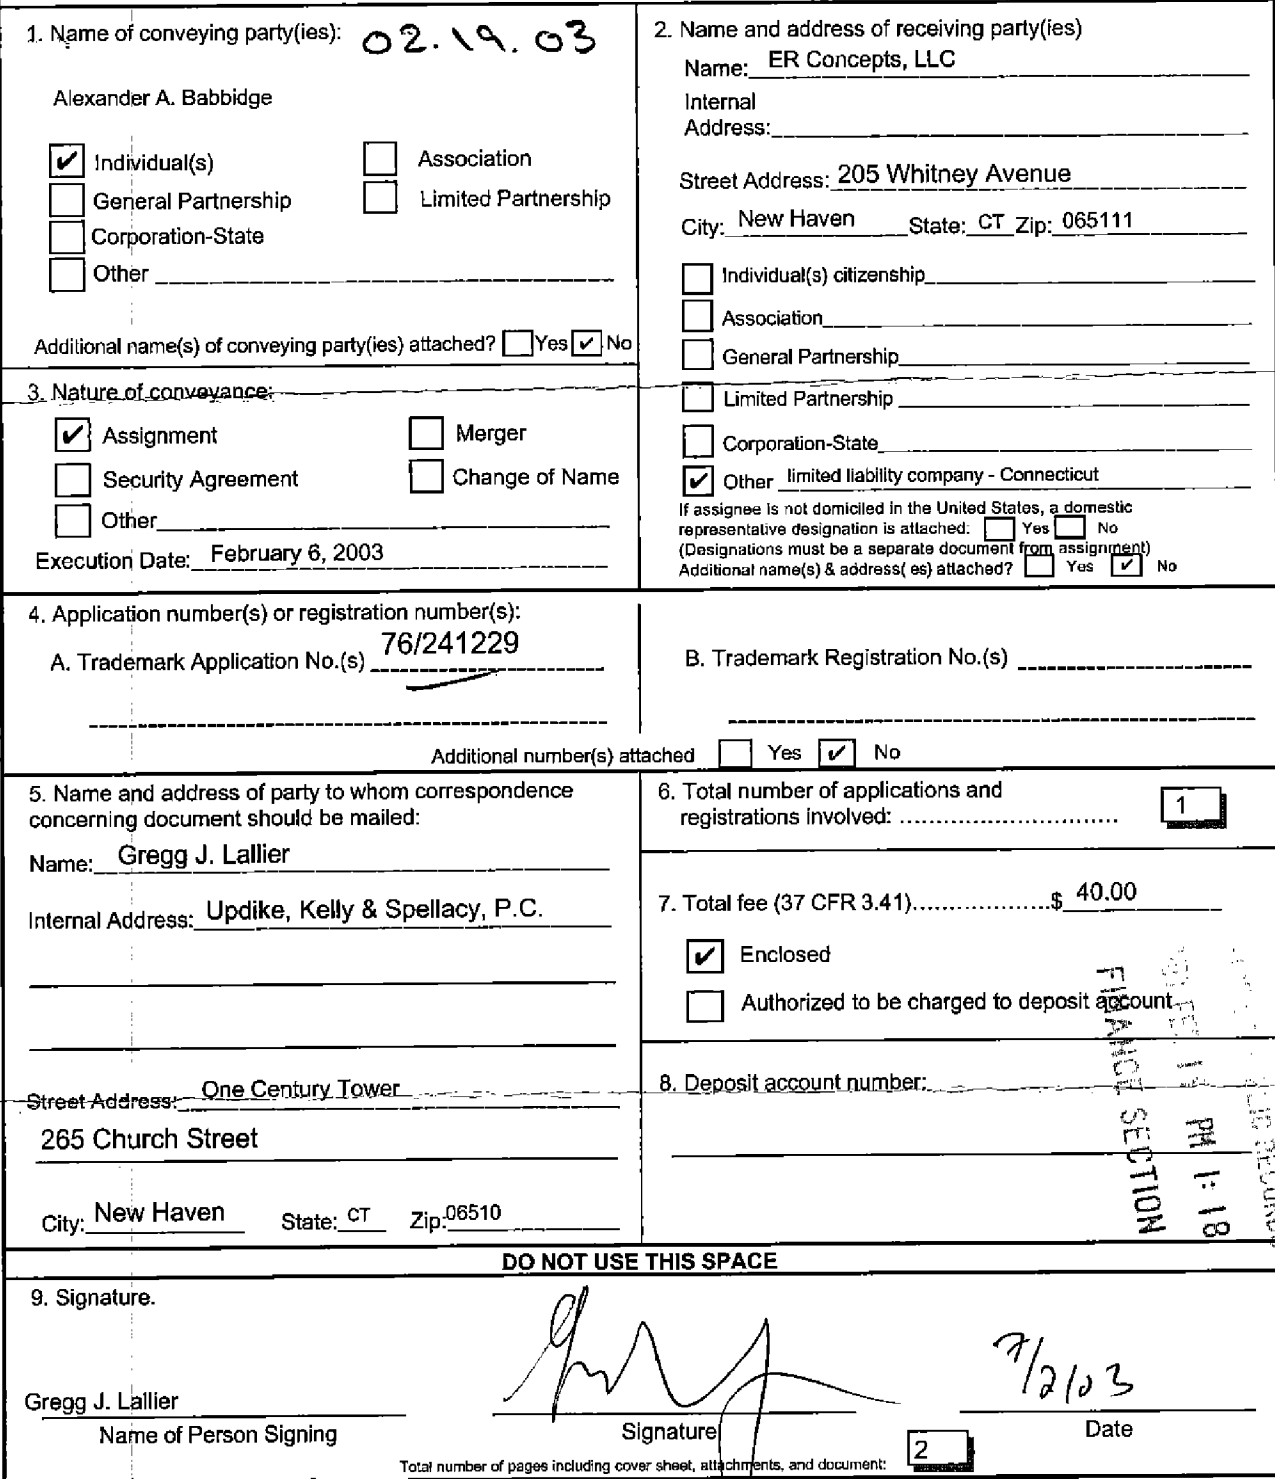 1. Name of conveying party(ies): 02.19.03
Alexander A. Babbidge
✔ Individual(s) Association
General Partnership Limited Partnership
Corporation-State
Other
Additional name(s) of conveying party(ies) attached? Yes ✔ No
2. Name and address of receiving party(ies)
Name: ER Concepts, LLC
Internal
Address:
Street Address: 205 Whitney Avenue
City: New Haven State: CT Zip: 065111
Individual(s) citizenship
Association
General Partnership
Limited Partnership
Corporation-State
✔ Other limited liability company - Connecticut
If assignee is not domiciled in the United States, a domestic
representative designation is attached: Yes No
(Designations must be a separate document from assignment)
Additional name(s) & address( es) attached? Yes ✔ No
3. Nature of conveyance:
✔ Assignment Merger
Security Agreement Change of Name
Other
Execution Date: February 6, 2003
4. Application number(s) or registration number(s):
A. Trademark Application No.(s) 76/241229
B. Trademark Registration No.(s)
Additional number(s) attached Yes ✔ No
5. Name and address of party to whom correspondence
concerning document should be mailed:
Name: Gregg J. Lallier
Internal Address: Updike, Kelly & Spellacy, P.C.
Street Address: One Century Tower
265 Church Street
City: New Haven State: CT Zip: 06510
6. Total number of applications and
registrations involved: ............................ 1
7. Total fee (37 CFR 3.41)....................$ 40.00
✔ Enclosed
Authorized to be charged to deposit account
8. Deposit account number:
FINANCE SECTION
PM 1:18
DO NOT USE THIS SPACE
9. Signature.
Gregg J. Lallier
Name of Person Signing Signature Date
Total number of pages including cover sheet, attachments, and document: 2